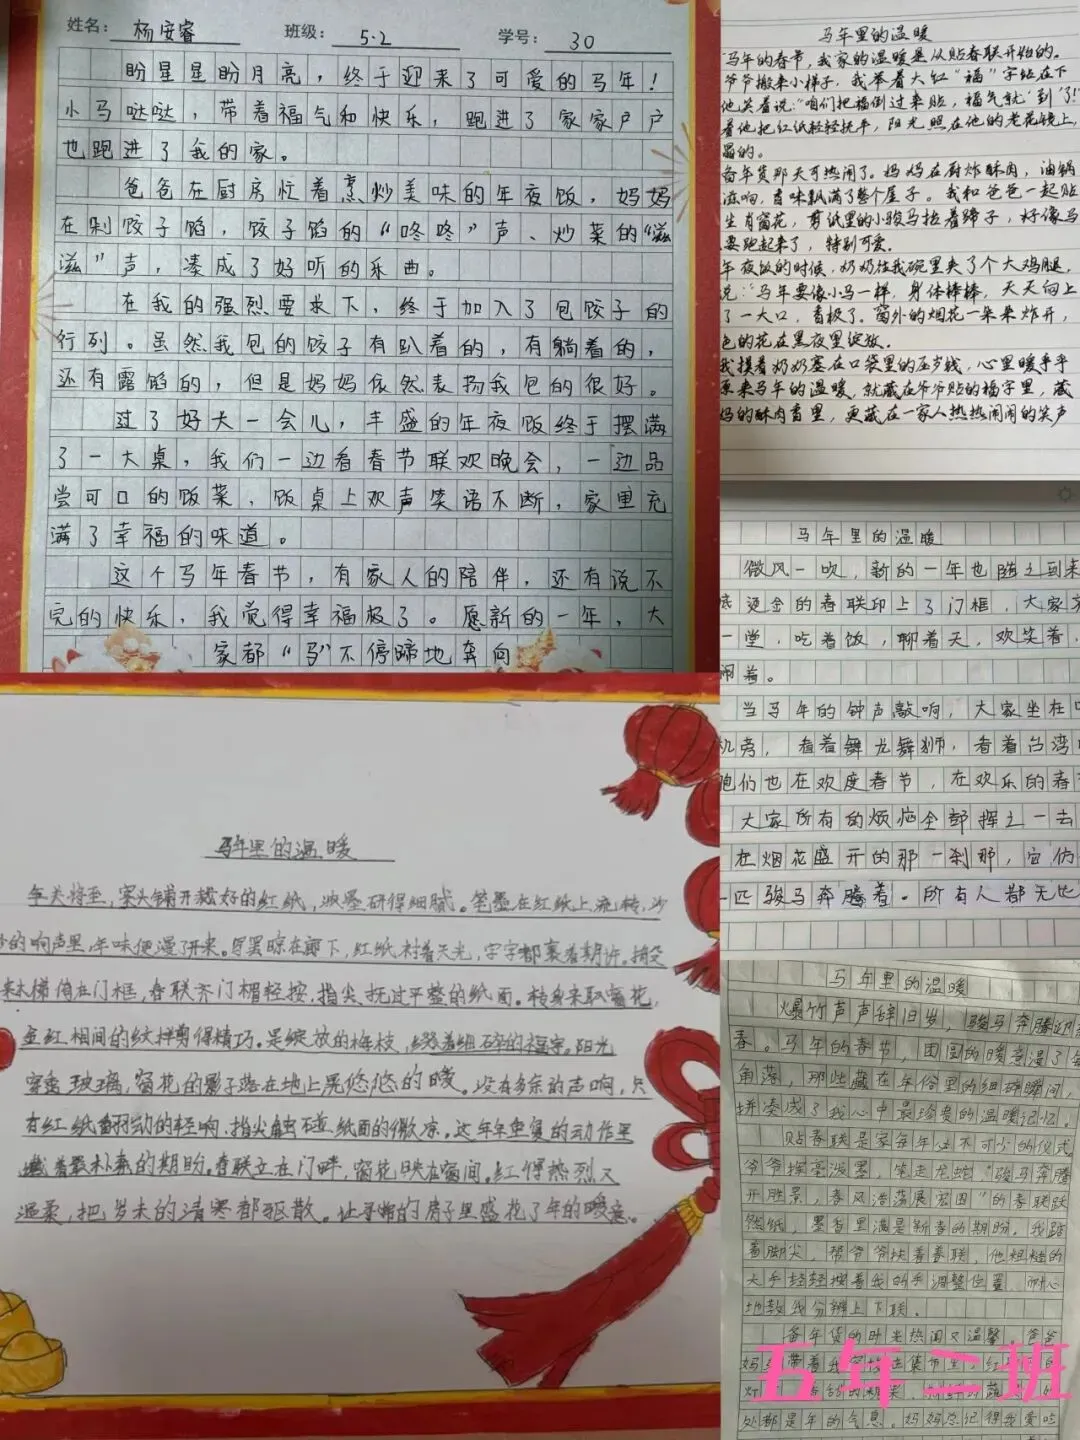 姓名： 杨安睿 班级： 5.2 学号： 30
盼星星盼月亮，终于迎来了可爱的马年！
小马哒哒，带着福气和快乐，跑进了家家户户
也跑进了我的家。
爸爸在厨房忙着烹炒美味的年夜饭，妈妈
在剁饺子馅，饺子馅的“咚咚”声、炒菜的“滋
滋”声，凑成了好听的乐曲。
在我的强烈要求下，终于加入了包饺子的
行列。虽然我包的饺子有趴着的，有躺着的，
还有露馅的，但是妈妈依然表扬我包的很好。
过了好大一会儿，丰盛的年夜饭终于摆满
了一大桌，我们一边看春节联欢晚会，一边品
尝可口的饭菜，饭桌上欢声笑语不断，家里充
满了幸福的味道。
这个马年春节，有家人的陪伴，还有说不
完的快乐，我觉得幸福极了。愿新的一年，大
家都“马”不停蹄地奔向
马年里的温暖
马年的春节，我家的温暖是从贴春联开始的。
爷爷搬来小梯子，我举着大红“福”字站在下
他笑着说：“咱们把福倒过来贴，福气就‘到’了！”
着他把红纸轻轻抚平，阳光照在他的老花镜上，
晶的。
备年货那天可热闹了。妈妈在厨炸酥肉，油锅
滋响，香味飘满了整个屋子。我和爸爸一起贴
生肖窗花，剪纸里的小骏马抬着蹄子，好像马
要跑起来了，特别可爱。
年夜饭的时候，奶奶往我碗里夹了个大鸡腿，
说：“马年要像小马一样，身体棒棒，天天向上
了一大口，香极了。窗外的烟花一朵朵炸开，
色的花在黑夜里绽放。
我摸着奶奶塞在口袋里的压岁钱，心里暖乎乎
原来马年的温暖，就藏在爷爷贴的福字里，藏
妈的酥肉香里，更藏在一家人热热闹闹的笑声
马年里的温暖
微风一吹，新的一年也随之到来
底烫金的春联印上了门框，大家
一堂，吃着饭，聊着天，欢笑着，
闹着。
当马年的钟声敲响，大家坐在
机旁，看着舞龙舞狮，看着台湾
胞们也在欢度春节，在欢乐的春
大家所有的烦恼全部挥之一去
在烟花盛开的那一刹那，宛仿
一匹骏马奔腾着。所有人都无比
马年里的温暖
年关将至，案头铺开裁好的红纸，浓墨研得细腻。笔墨在红纸上流转，沙
沙的响声里，年味便漫了开来。写罢晾在廊下，红纸衬着天光，字字都裹着期许。
来木梯倚在门框，春联齐门楣轻按，指尖抚过平整的纸面。转身来取窗花，
金红相间的纹样剪得精巧。是绽放的梅枝，绕着细碎的福字。阳光
穿透玻璃，窗花的影子落在地上晃悠悠的暖。没有多余的声响，只
有红纸翻动的轻响，指尖触碰纸面的微凉。这年年重复的动作里
藏着最朴素的期盼。春联立在门畔，窗花映在窗间。红得热烈又
温柔，把岁末的清寒都驱散。让平常的房子里盛花了年的暖意。
马年里的温暖
爆竹声声辞旧岁，骏马奔腾迎
春。马年的春节，团圆的暖意漫了每
角落，那些藏在年俗里的细碎瞬间，
拼凑成了我心中最珍贵的温暖记忆。
贴春联是家每年必不可少的仪式
爷爷挥毫泼墨，笔走龙蛇，“骏马奔腾
开胜景，春风浩荡展宏图”的春联跃
然纸，墨香里满是新春的期盼。我踮
着脚尖，帮爷爷扶着春联，他粗糙的
大手轻轻按着我的手调整位置，耐心
地教我分辨上下联。
备年货的时光热闹又温馨，爸爸
妈妈带着我穿
处都是年的气息。妈妈总记得我爱吃
五年二班